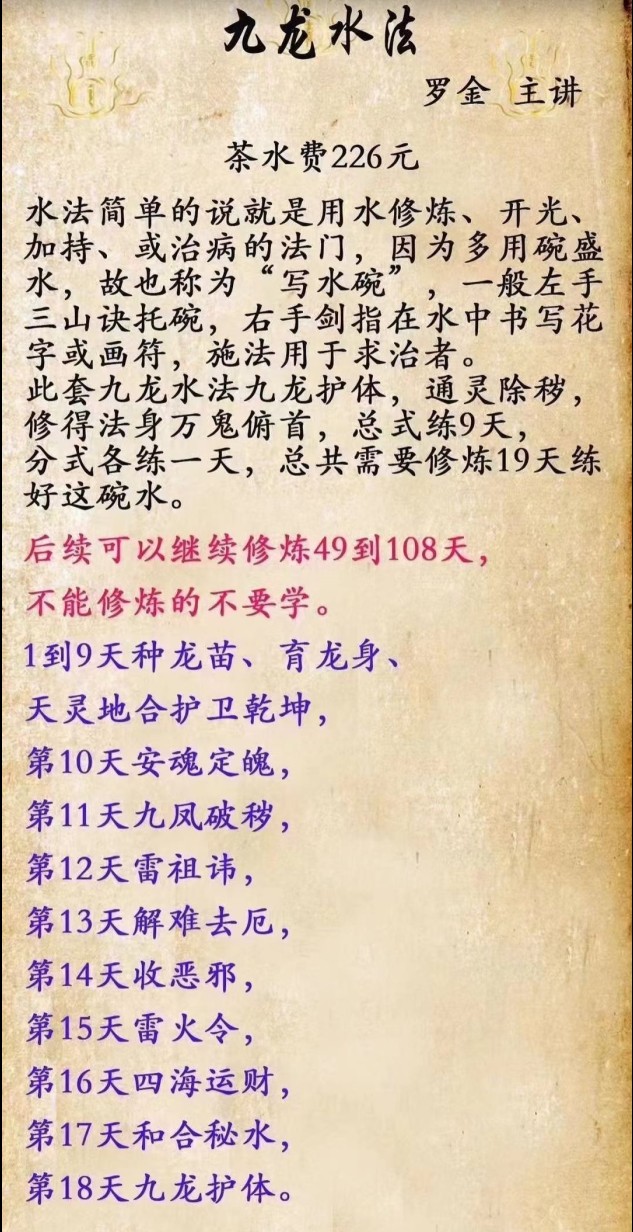 九龙水法
罗金 主讲
茶水费226元
水法简单的说就是用水修炼、开光、
加持、或治病的法门，因为多用碗盛
水，故也称为“写水碗”，一般左手
三山诀托碗，右手剑指在水中书写花
字或画符，施法用于求治者。
此套九龙水法九龙护体，通灵除秽，
修得法身万鬼俯首，总式练9天，
分式各练一天，总共需要修炼19天练
好这碗水。
后续可以继续修炼49到108天，
不能修炼的不要学。
1到9天种龙苗、育龙身、
天灵地合护卫乾坤，
第10天安魂定魄，
第11天九凤破秽，
第12天雷祖讳，
第13天解难去厄，
第14天收恶邪，
第15天雷火令，
第16天四海运财，
第17天和合秘水，
第18天九龙护体。